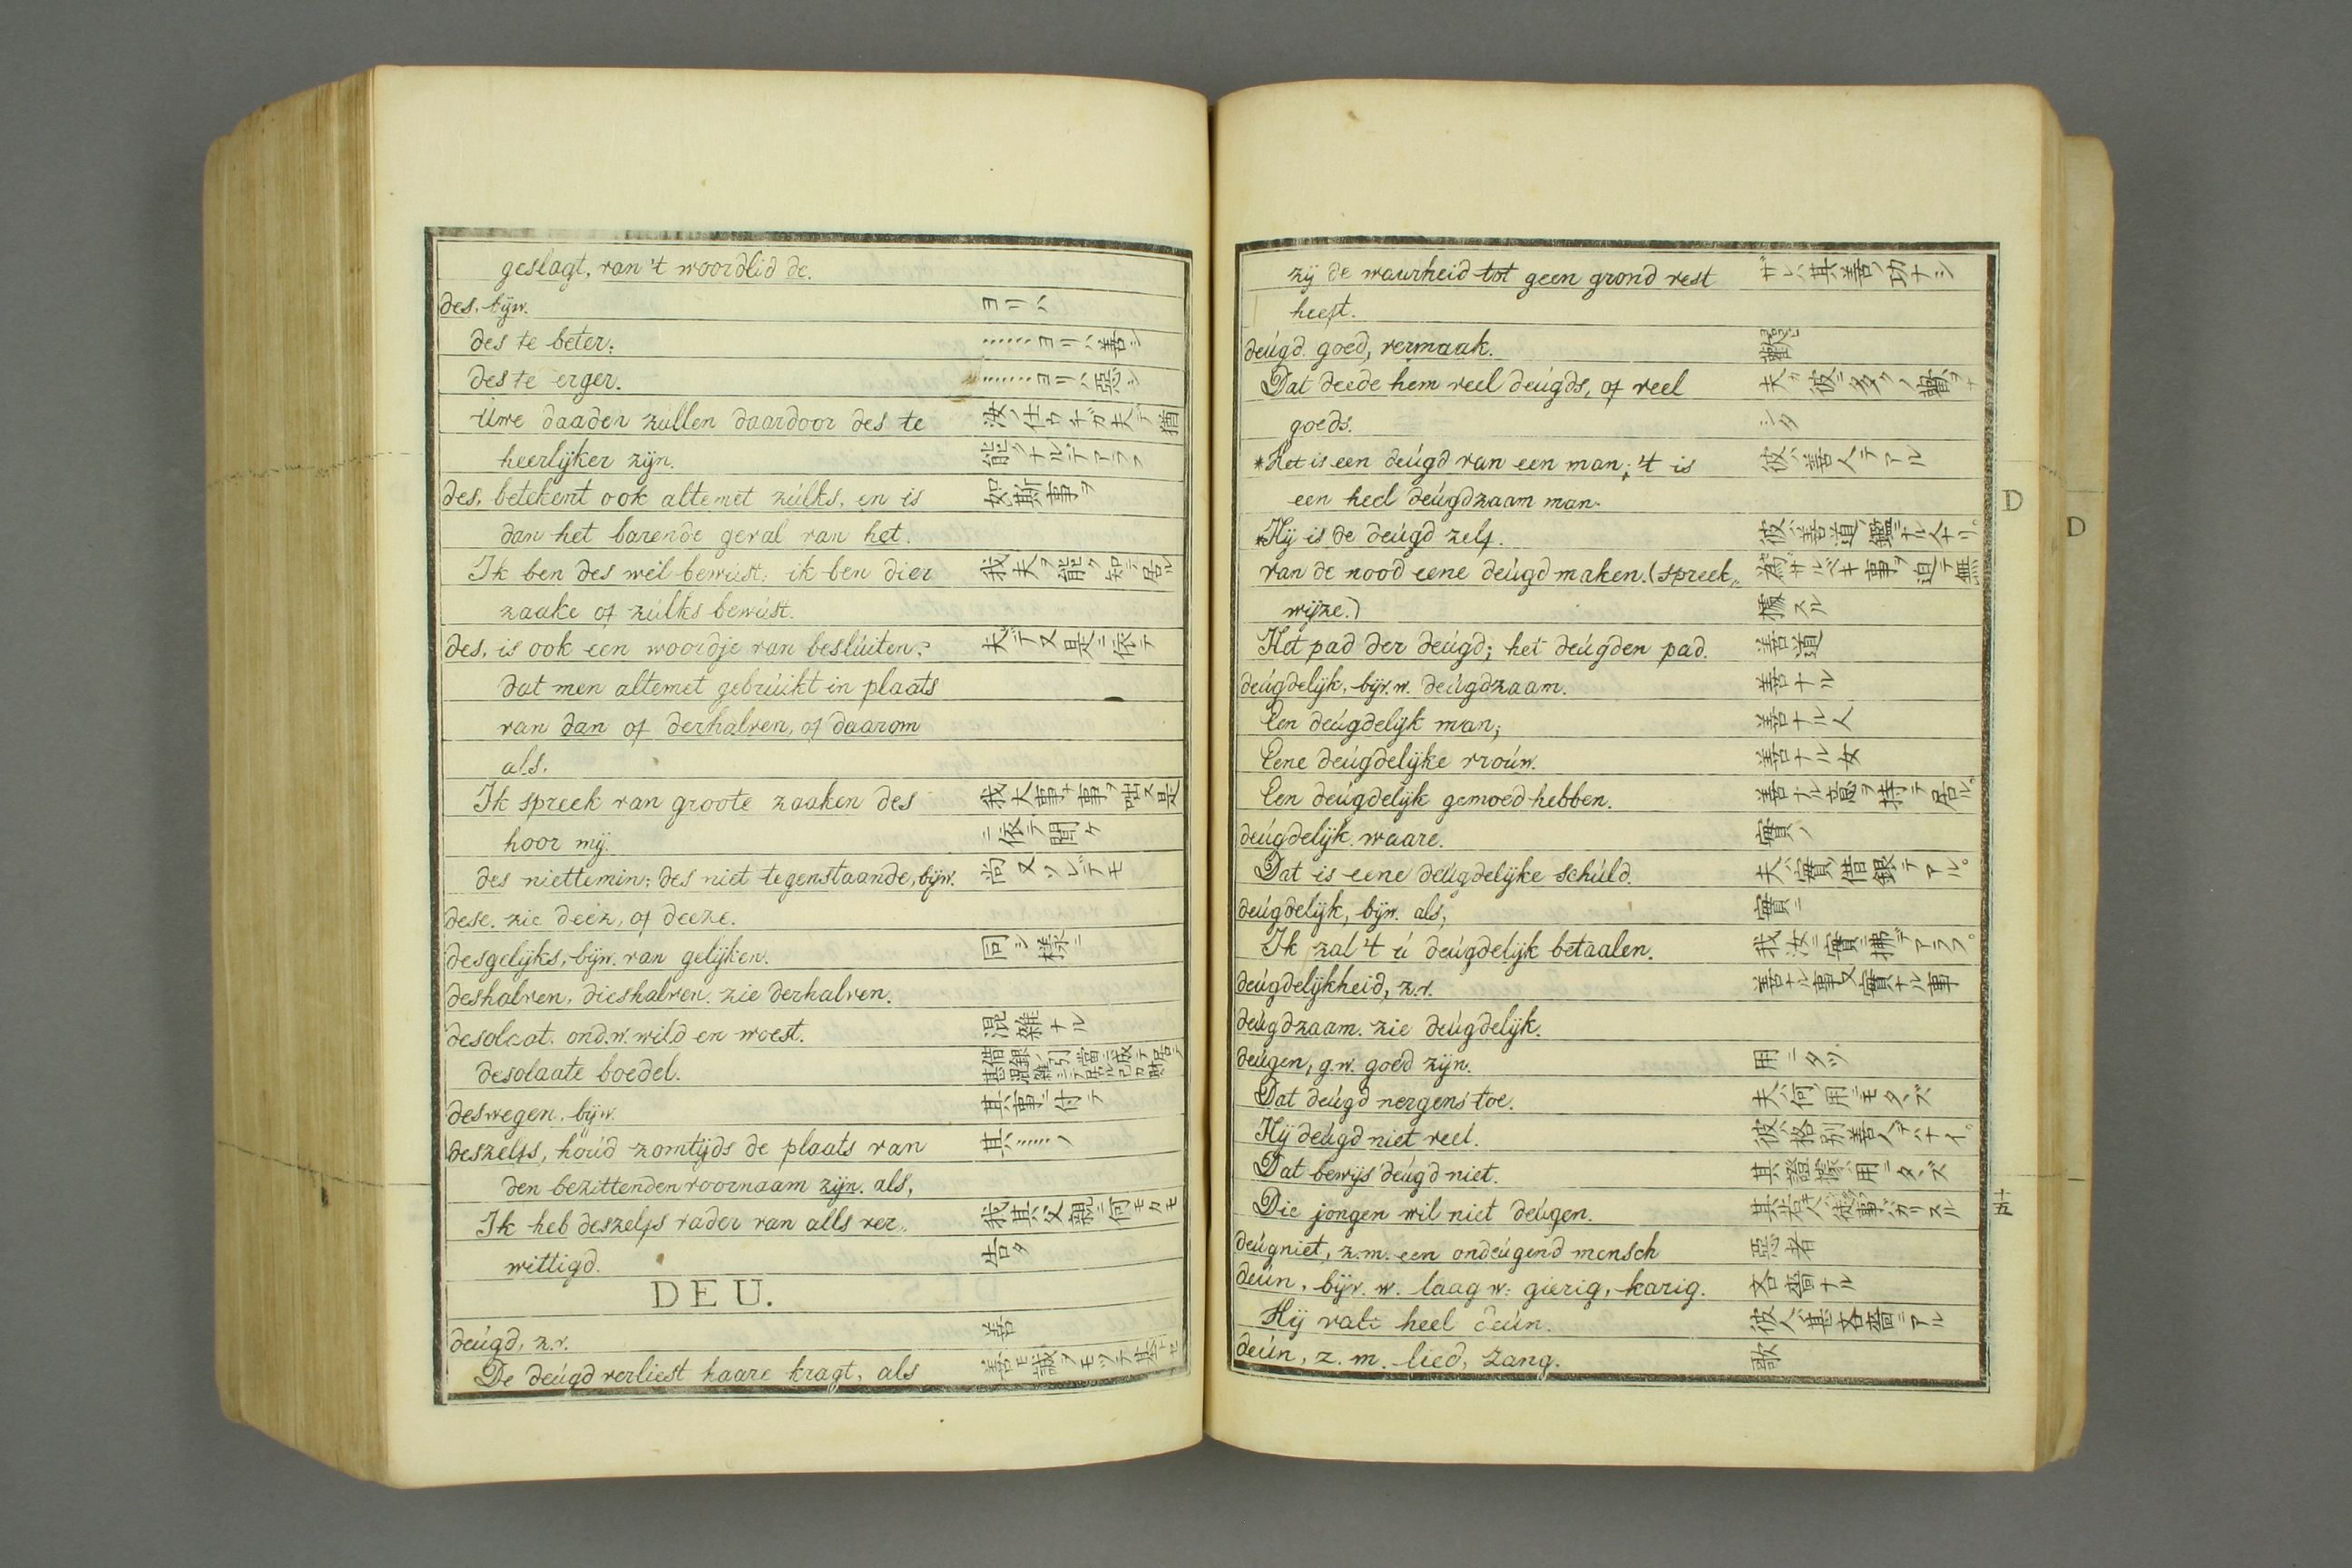 geslagt, van 't woordlid de.
des, bijw. ヨリハ
des te beter; ……ヨリハ善シ
des te erger. ……ヨリハ惡シ
Uwe daaden zúllen daardoor des te 汝ノ仕ワザガ夫デ猶
heerlijker zijn. 能クナルデアラフ
des, betekent ook altemet zúlks, en is 如斯事ヲ
dan het barende geval van het.
Ik ben des wel bewúst; ik ben dier 我夫ヲ能ク知テ居ル
zaake of zúlks bewúst.
des, is ook een woordje van beslúiten; 夫デ又是ニ依テ
dat men altemet gebrúikt in plaats
van dan of derhalven, of daarom
als.
Ik spreek van groote zaaken des 我大事ナ事ヲ咄ス是
hoor mij. ニ依テ聞ケ
des niettemin; des niet tegenstaande, bijw. 尚又ソレデモ
dese. zie deez, of deeze.
desgelijks, bijw. van gelijken. 同シ樣ニ
deshalven, dieshalven. zie derhalven.
desolaat. ond.w. wild en woest. 混雜ナル
desolaate boedel. 借銀ノ引當ニ成テ居テ甚混雜シテ居ル
deswegen, bijw. 其事ニ付テ
deszelfs, hoúd zomtijds de plaats van 其……ノ
den bezittenden voornaam zijn. als,
Ik heb deszelfs vader van alls ver„ 我其父親ニ何モカモ
wittigd. 告タ
DEU.
deúgd, z.v. 善
De deúgd verliest haare kragt, als 善ヒ誠ヲモツテ基トセ
zij de waurheid tot geen grond vest ザレハ其善ノ功ナシ
heeft.
deúgd. goed, vermaak. 歡ビ
Dat deede hem veel deúgds, of veel 夫ガ彼ニ多クノ歡ヲナ
goeds. シタ
*Het is een deúgd van een man; 't is 彼ハ善人デアル
een heel deúgdzaam man.
*Hij is de deúgd zelf. 彼ハ善道ノ鑑ナル人ナリ。
van de nood eene deúgd maken. (spreek„ 為ザルベキ事ヲ迫テ無
wijze.) 據スル
Het pad der deúgd; het deúgden pad. 善道
deúgdelijk, bijv. w. deúgdzaam. 善ナル
Een deúgdelijk man; 善ナル人
Eene deúgdelijke vroúw. 善ナル女
Een deúgdelijk gemoed hebben. 善ナル意ヲ持テ居ル。
deúgdelijk. waare. 實ノ
Dat is eene deúgdelijke schúld. 夫ハ實ノ借銀デアル。
deúgdelijk, bijw. als, 實ニ
Ik zal 't ú deúgdelijk betaalen. 我汝ニ實ニ拂デアラフ。
deúgdelijkheid, z.v. 善ナル事又實ナル事
deúgdzaam. zie deúgdelijk.
deúgen, g.w. goed zijn. 用ニタツ
Dat deúgd nergens toe. 夫ハ何ノ用ニモタヽズ
Hij deúgd niet veel. 彼ハ格別善人デハナイ。
Dat bewijs deúgd niet. 其證據ハ用ニタヽズ
Die jongen wil niet deúgen. 其若キ人ハ徒事バカリスル
deúgniet, z.m. een ondeúgend mensch 惡者
deún, bijv. w. laag w: gierig, karig. 吝嗇ナル
Hij valt heel deún. 彼人ハ甚吝嗇デアル
deún, z.m. lied, zang. 歌
D
D